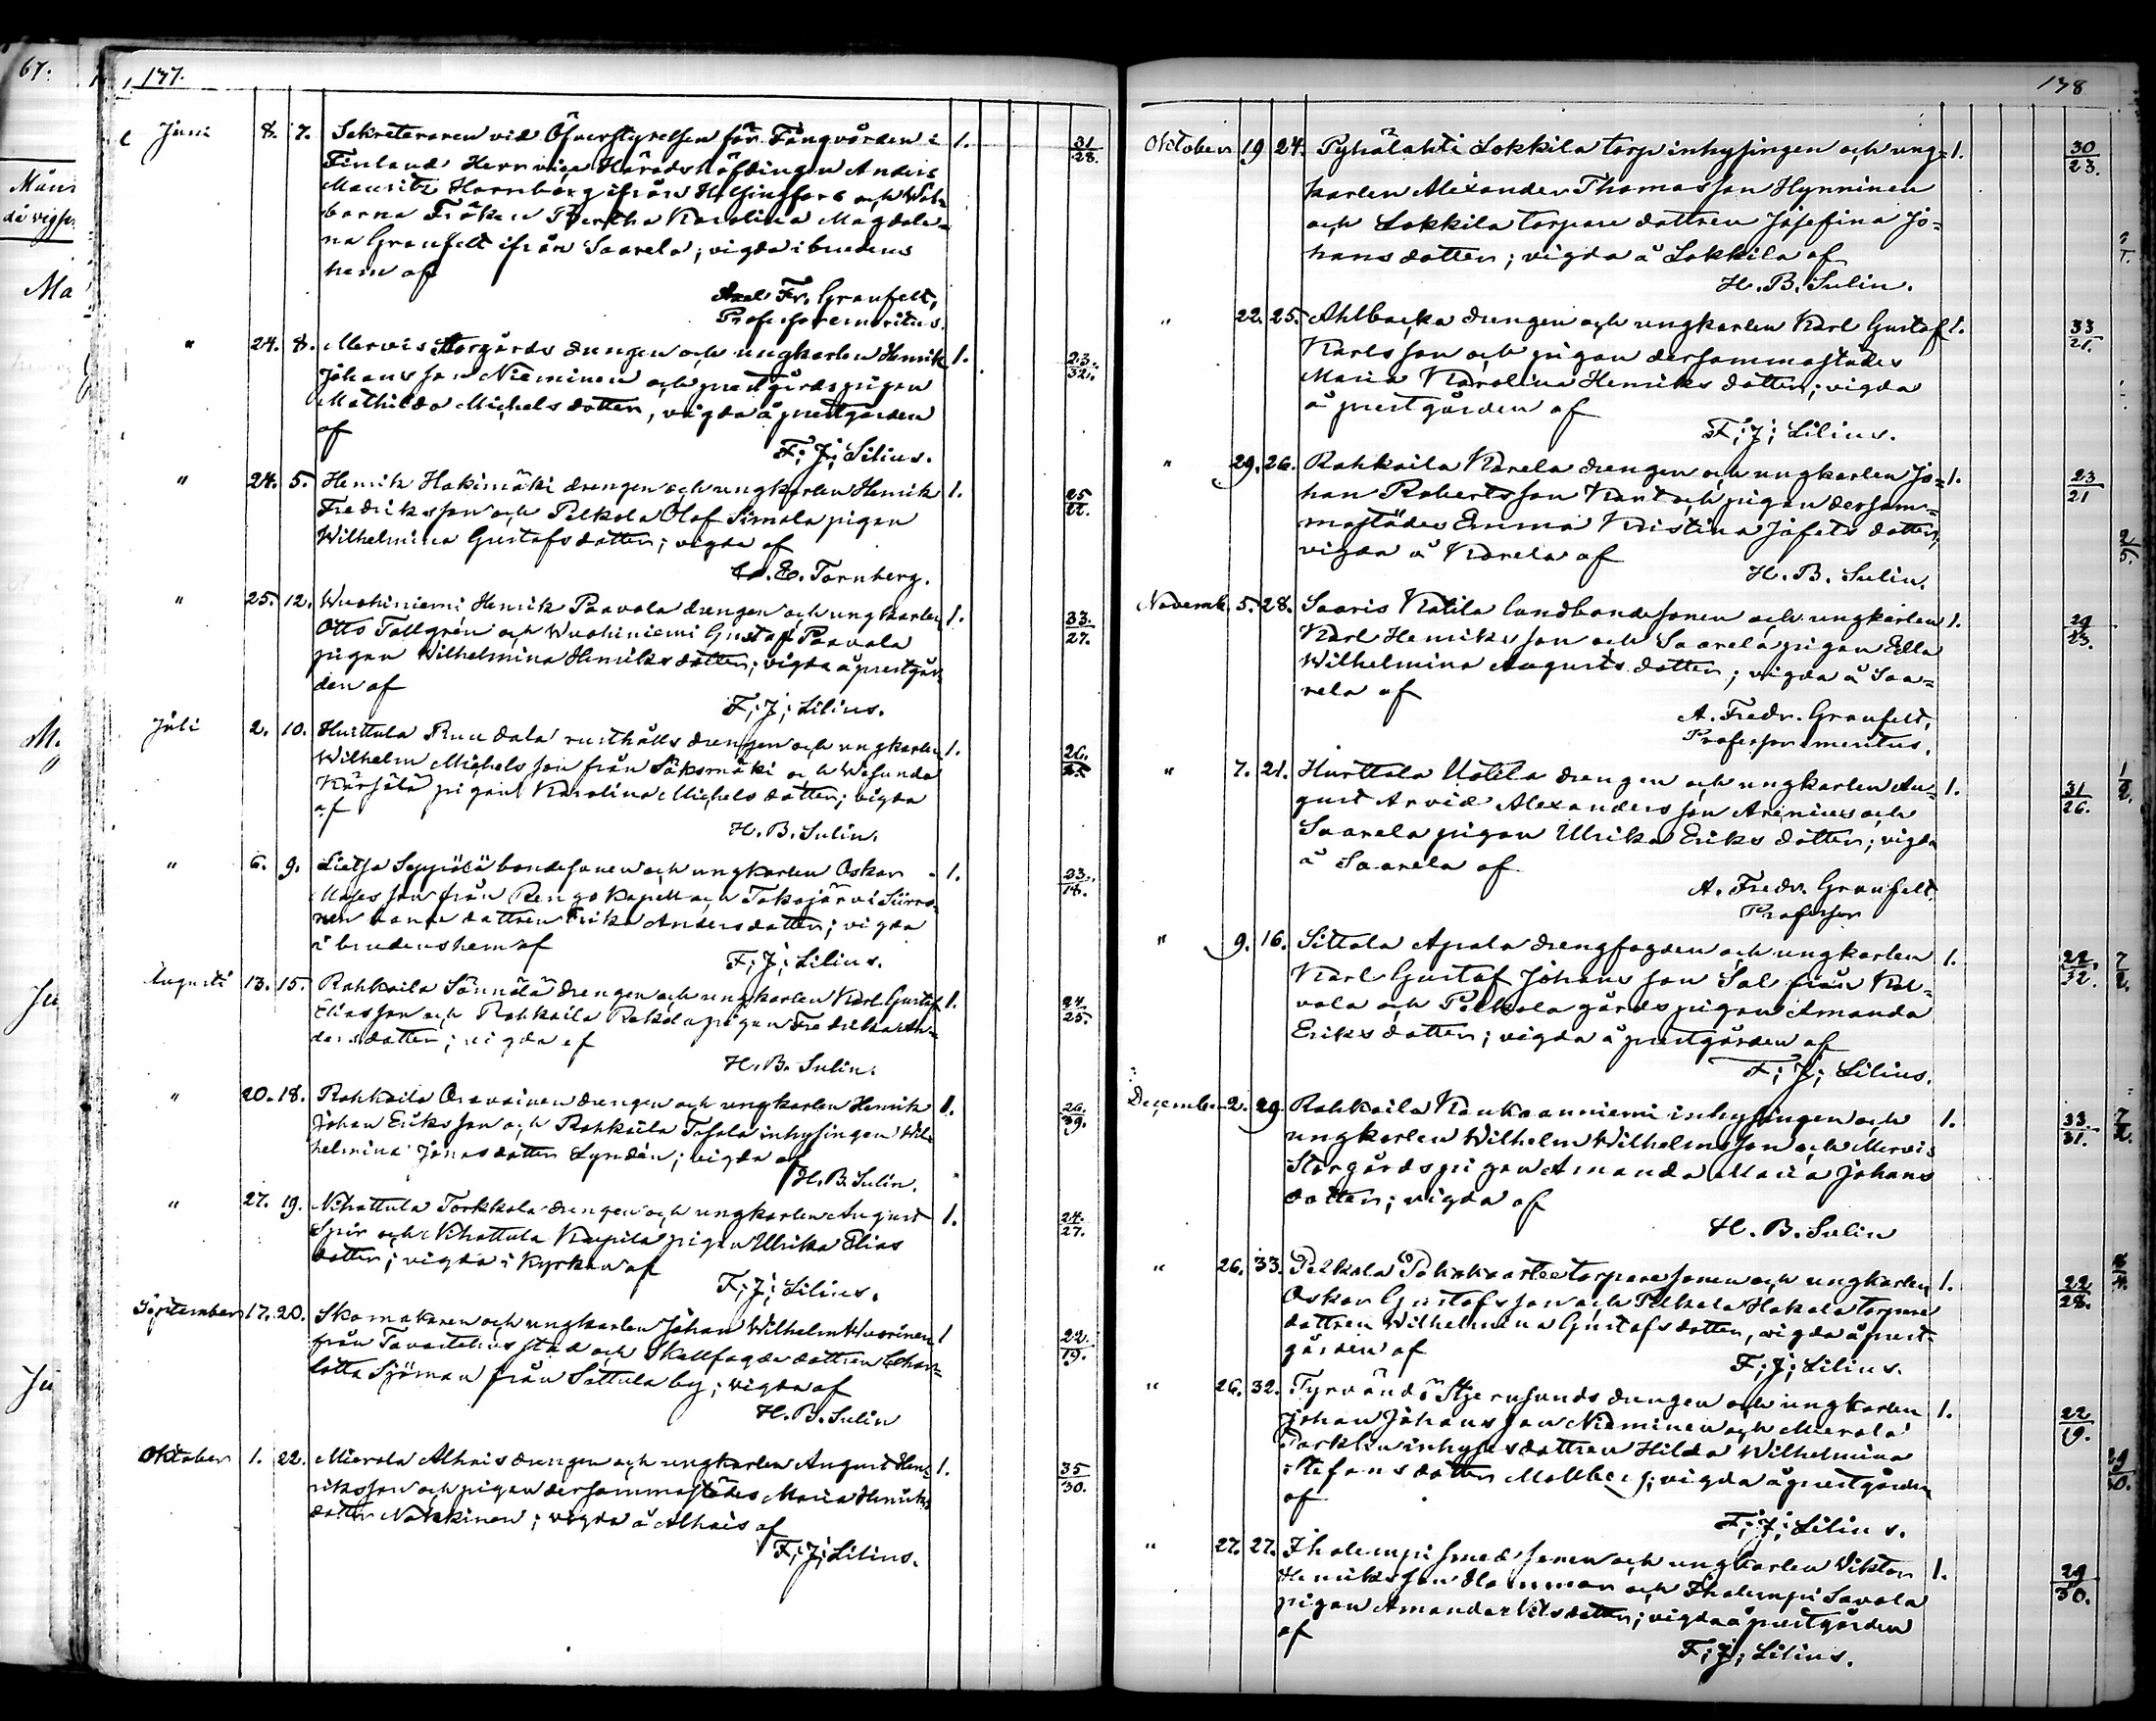 67.
137.
Juni 8. 7. Sekreteraren vid Öfverstyrelsen för Fångvården i 1. 31/28.
Finland Herr vice Häradshöfdingen Anders
Mauritz Hornborg ifrån Helsingfors och Wäl-
borna Fröken Bertha Karolina Magdale-
na Granfelt ifrån Saarela; vigda i brudens
hem af
Axel Fr. Granfelt,
Professor emeritus.
" 24. 8. Mervis Storgårds drengen och ungkarlen Henrik 1. 23./32.
Johansson Nieminen och prestgårds pigan
Mathilda Michels dotter, vigda å prestgården
af
F; J; Lilius.
" 24. 5. Henrik Hakimäki drengen och ungkarlen Henrik 1. 25/22.
Fredriksson och Pelkola Olof Simola pigan
Wilhelmina Gustafs dotter; vigda af
E. Tornberg.
" 25. 12. Wuohiniemi Henrik Paavola drengen och ungkarlen 1. 33./27.
Otto Tallgrén och Wuohiniemi Gustaf Paavola
pigan Wilhelmina Henriks dotter; vigda å prestgår-
den af
F; J; Lilius.
Juli 2. 10. Hurttula Ruudala rusthålls drengen och ungkarlen 1. 26./25
Wilhelm Michelsson från Sääksmäki och Wesunda
Kärjälä pigan Karolina Michels dotter; vigda
af
H. B. Sulin.
" 6. 9. Lietsa Seppälä bondesonen och ungkarlen Oskar 1. 23./18.
Mosesson från Rengo Kapell och Takajärvi
dottren Erika Anders dotter; vigda
i brudens hem af
F; J; Lilius.
Augusti 13. 15. Rahkoila Sännälä drengen och ungkarlen Karl Gustaf 1. 24./25.
Eliasson och Rahkoila pigan Fredrika An-
ders dotter; vigda af
H. B. Sulin.
" 20. 18. Rahkoila Oravainen drengen och ungkarlen Henrik 1. 26./39.
Johan Eriksson och Rahkoila Tasala inhysingen Wil-
helmina Jonas dotter Lyndén; vigda af
H. B. Sulin.
" 27. 19. Nihattula Torkkola drengen och ungkarlen August 1. 24./27.
Spir och Nihattula Kaupila pigan Ulrika Elias
dotter; vigda i Kyrkan af
F; J; Lilius.
September 17. 20. Skomakaren och ungkarlen Johan Wilhelm Wuorinen 1 22./19.
från Tavastehus stad och Skallfogde dottren Char-
lotta Sjöman från Sattula by; vigda af
H. B. Sulin
Oktober 1. 22. Mierola Alhais drengen och ungkarlen August Hen- 1. 35/30.
riksson och pigan dersammastädes Maria Henriks
dotter Nokkinen; vigda å Alhais af
F; J; Lilius.
138
Oktober 19 24. Pyhälahti Lokkila torp inhysingen och ung- 1. 30/23.
karlen Alexander Thomasson Hynninen
och Lokkila torpare dottren Josefina Jo-
hans dotter; vigda å Lokkila af
H. B. Sulin.
" 22. 25. Ahlbacka drengen och ungkarlen Karl Gustaf 1. 33/21.
Karlsson och pigan dersammastädes
Maria Karolina Henriks dotter; vigda
å prestgården af
F; J; Lilius.
" 29. 26. Rahkoila Karela drengen och ungkarlen Jo- 1. 23/21
han Robertsson Kant och pigan dersam-
mastädes Emma Kristina Jafets dotter;
vigda å Karela af
H. B. Sulin.
Novemb. 5. 28. Saaris Katila landbondesonen och ungkarlen 1. 29/23.
Karl Henriksson och Saarela pigan Edla
Wilhelmina Augusts dotter; vigda å Saa-
rela af
A. Fredr. Granfelt,
Professor emeritus.
" 7. 21. Hurttala Uotila drengen och ungkarlen Au- 1. 31/26.
gust Arvid Alexandersson Arenius och
Saarela pigan Ulrika Eriks dotter; vigda
å Saarela af
A. Fredr. Granfelt
Professor
" 9. 16. Sittala Apala drengfogden och ungkarlen 1. 22./32.
Karl Gustaf Johansson Sal från Kal-
vola och Pelkola gårds pigan Amanda
Eriks dotter; vigda å prestgården af
F; J; Lilius.
December 2. 29. Rahkoila Kaukoanniemi inhysingen och 1. 33./31.
ungkarlen Wilhelm Wilhelmsson och Mervis
Storgårds pigan Amanda Maria Johans
dotter; vigda af
H. B. Sulin
" 26. 33. Pelkola torparesonen och ungkarlen 1. 22/28.
Oskar Gustafsson och Pelkola Hakala torpare
dottren Wilhelmina Gustafs dotter, vigda å prest-
gården af
F; J; Lilius.
" 26. 32. Tyrvändö Stjernsunds drengen och ungkarlen 1. 22/19.
Johan Johansson Nieminen och Mierola
inhyses dottren Hilda Wilhelmina
Stefans dotter Mollberg; vigda å prestgården
af
F; J; Lilius.
" 27. 27. Ihalempi smedsonen och ungkarlen Viktor 1. 29/30.
Henriksson Hammar och Ihalempi Savola
pigan Amanda Nils dotter; vigda å prestgården
af
F; J; Lilius.